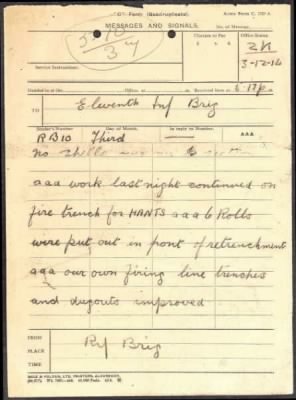 "C" Form (Quadruplicate). Army Form C. 2121 A.
MESSAGES AND SIGNALS. No. of Message
Charges to Pay.
£ s. d.
Office Stamp.
3-12-14
Service Instructions.
Handed in at the Office at m. Received here at m.
TO Eleventh Inf Brig
Sender's Number Day of Month. In reply to Number AAA
RB10 Third —
no shells
aaa work last night continued on
fire trench for HANTS aaa 6 Rolls
were put out in front of retrenchment
aaa our own firing line trenches
and dugouts improved
FROM Rif Brig
PLACE
TIME